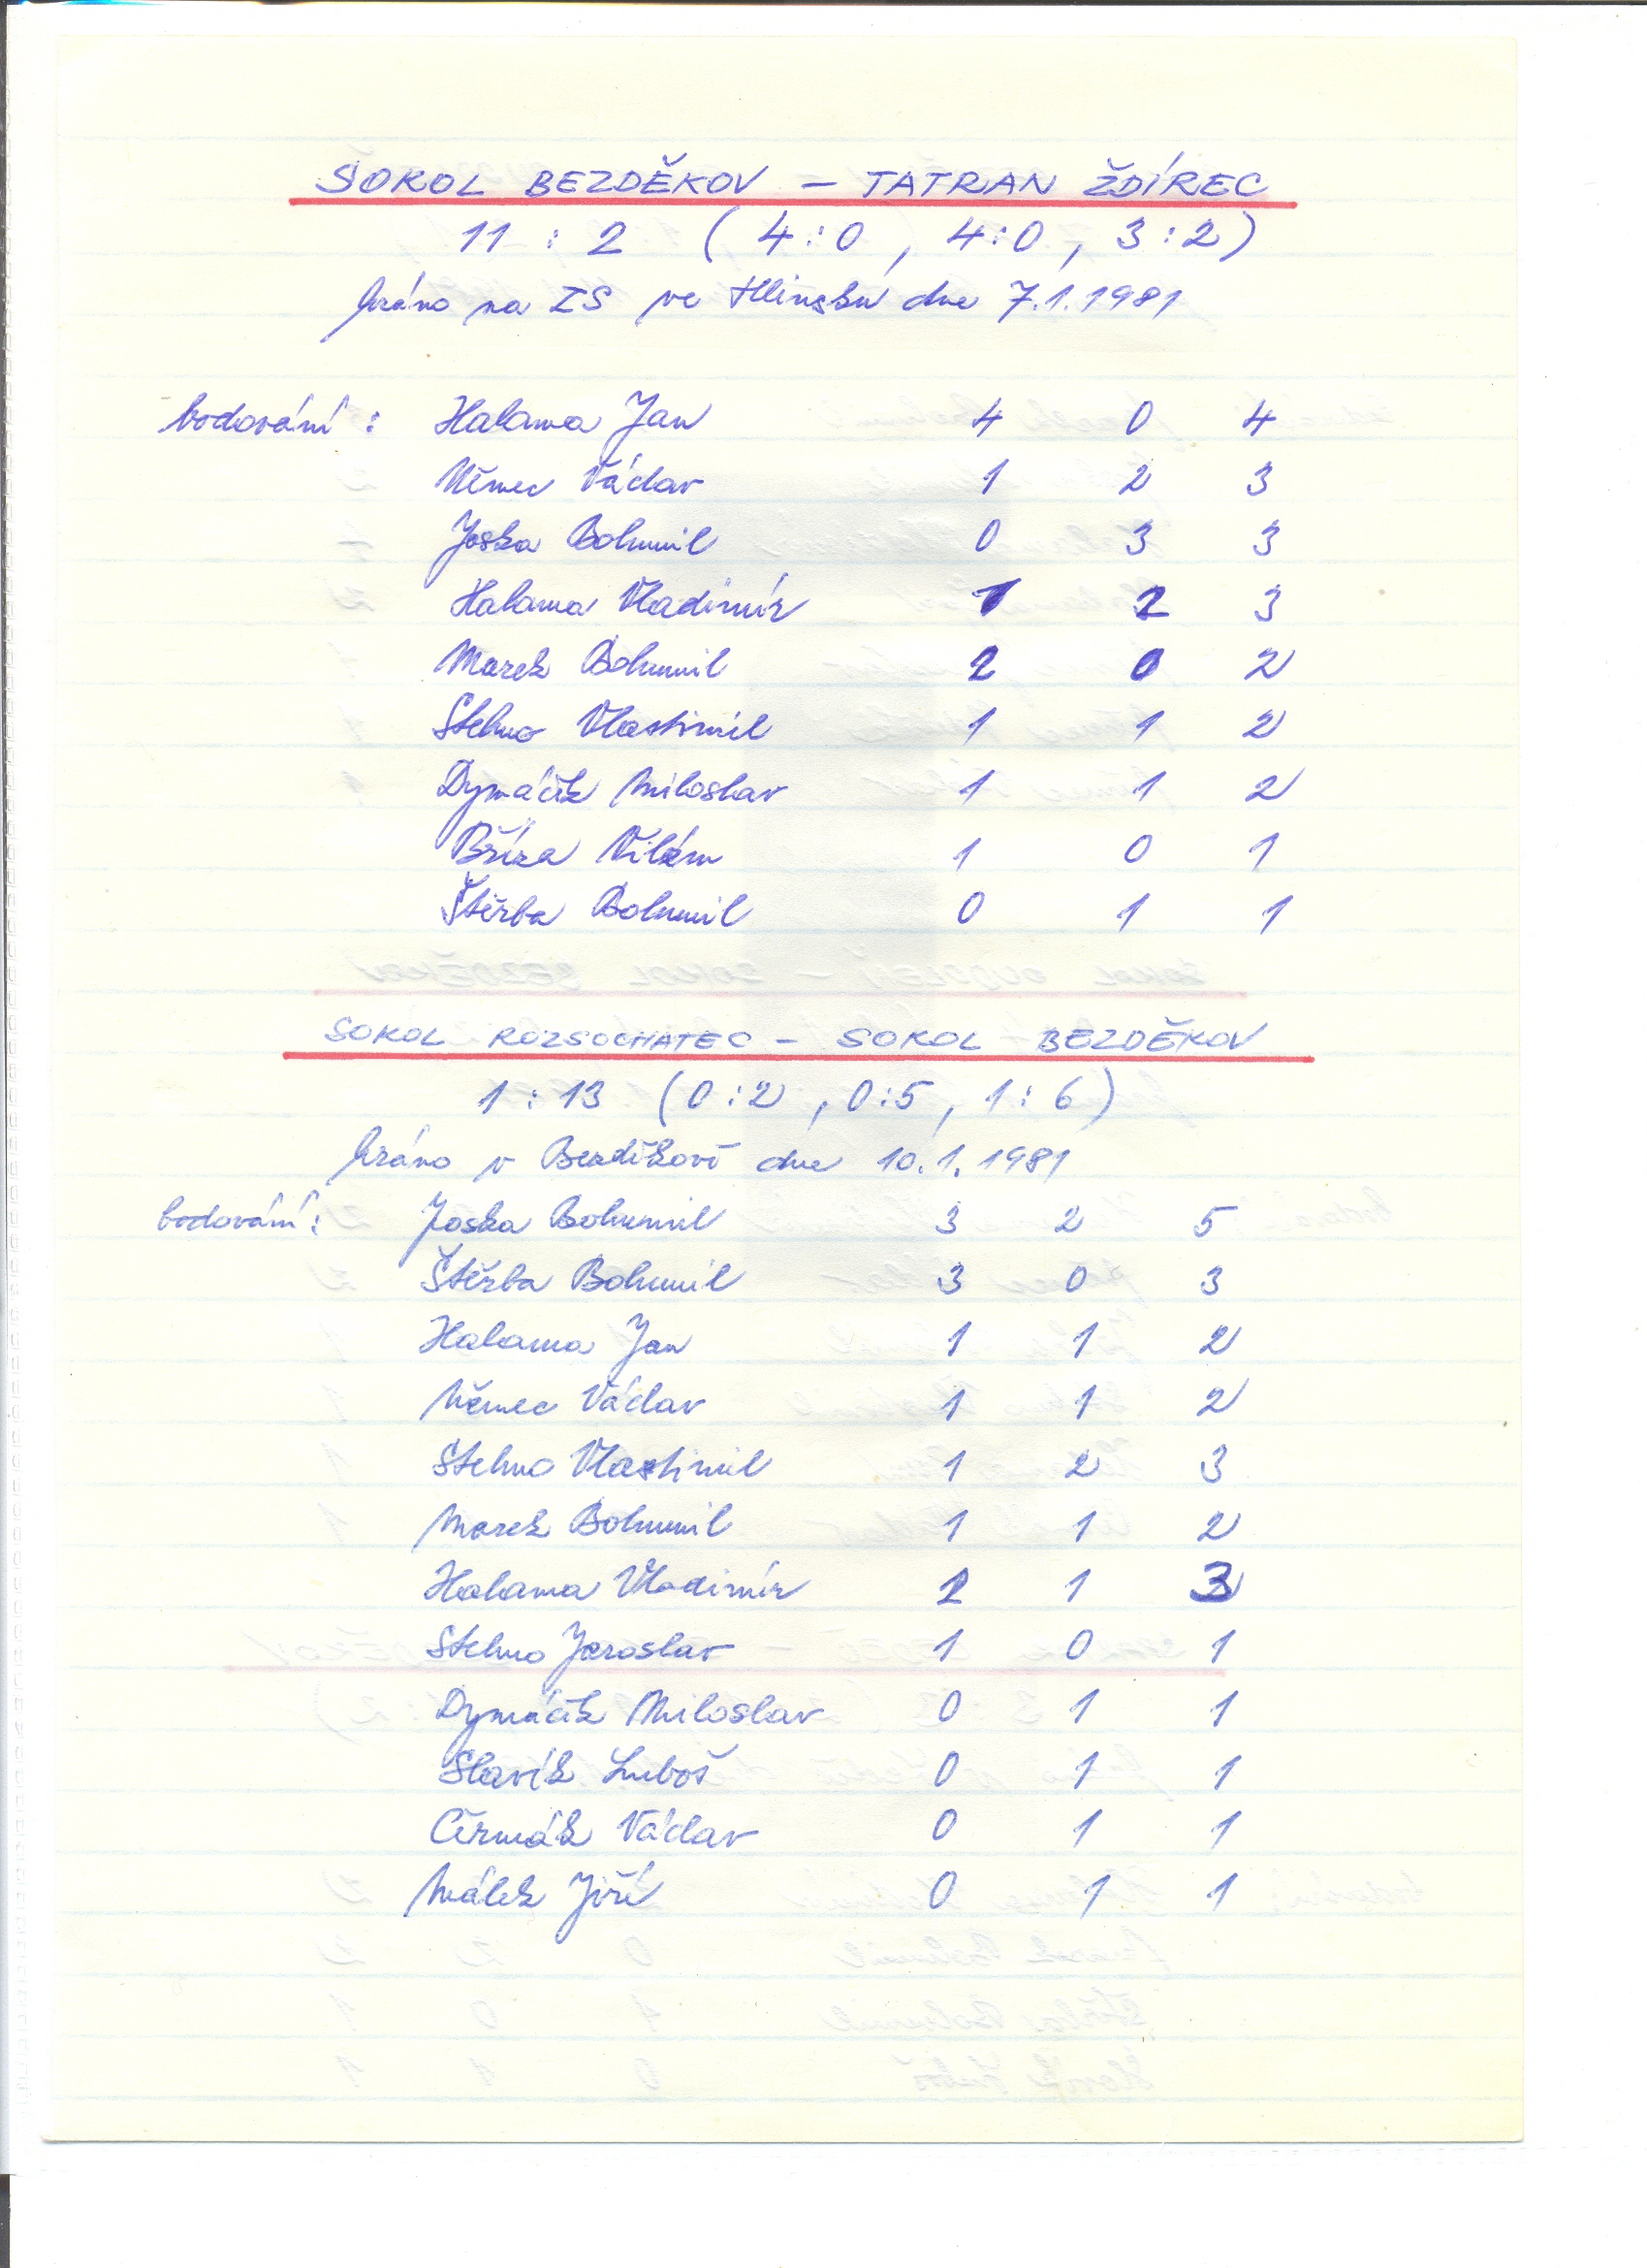 SOKOL BEZDĚKOV – TATRAN ŽDÍREC
11 : 2 ( 4:0 , 4:0 , 3:2 )
hráno na ZS ve Hlinsku dne 7.1.1981
bodování : Halama Jan 4 0 4
Němec Václav 1 2 3
Joska Bohumil 0 3 3
Halama Vladimír 1 2 3
Marek Bohumil 2 0 2
Stehno Vlastimil 1 1 2
Dymáčik Miloslav 1 1 2
Bříza Vilém 1 0 1
Štěrba Bohumil 0 1 1
SOKOL ROZSOCHATEC – SOKOL BEZDĚKOV
1 : 13 ( 0:2 , 0:5 , 1:6 )
hráno v Bezděkově dne 10.1.1981
bodování : Joska Bohumil 3 2 5
Štěrba Bohumil 3 0 3
Halama Jan 1 1 2
Němec Václav 1 1 2
Stehno Vlastimil 1 2 3
Marek Bohumil 1 1 2
Halama Vladimír 2 1 3
Stehno Jaroslav 1 0 1
Dymáčik Miloslav 0 1 1
Slavík Luboš 0 1 1
Čermák Václav 0 1 1
Málek Jiří 0 1 1